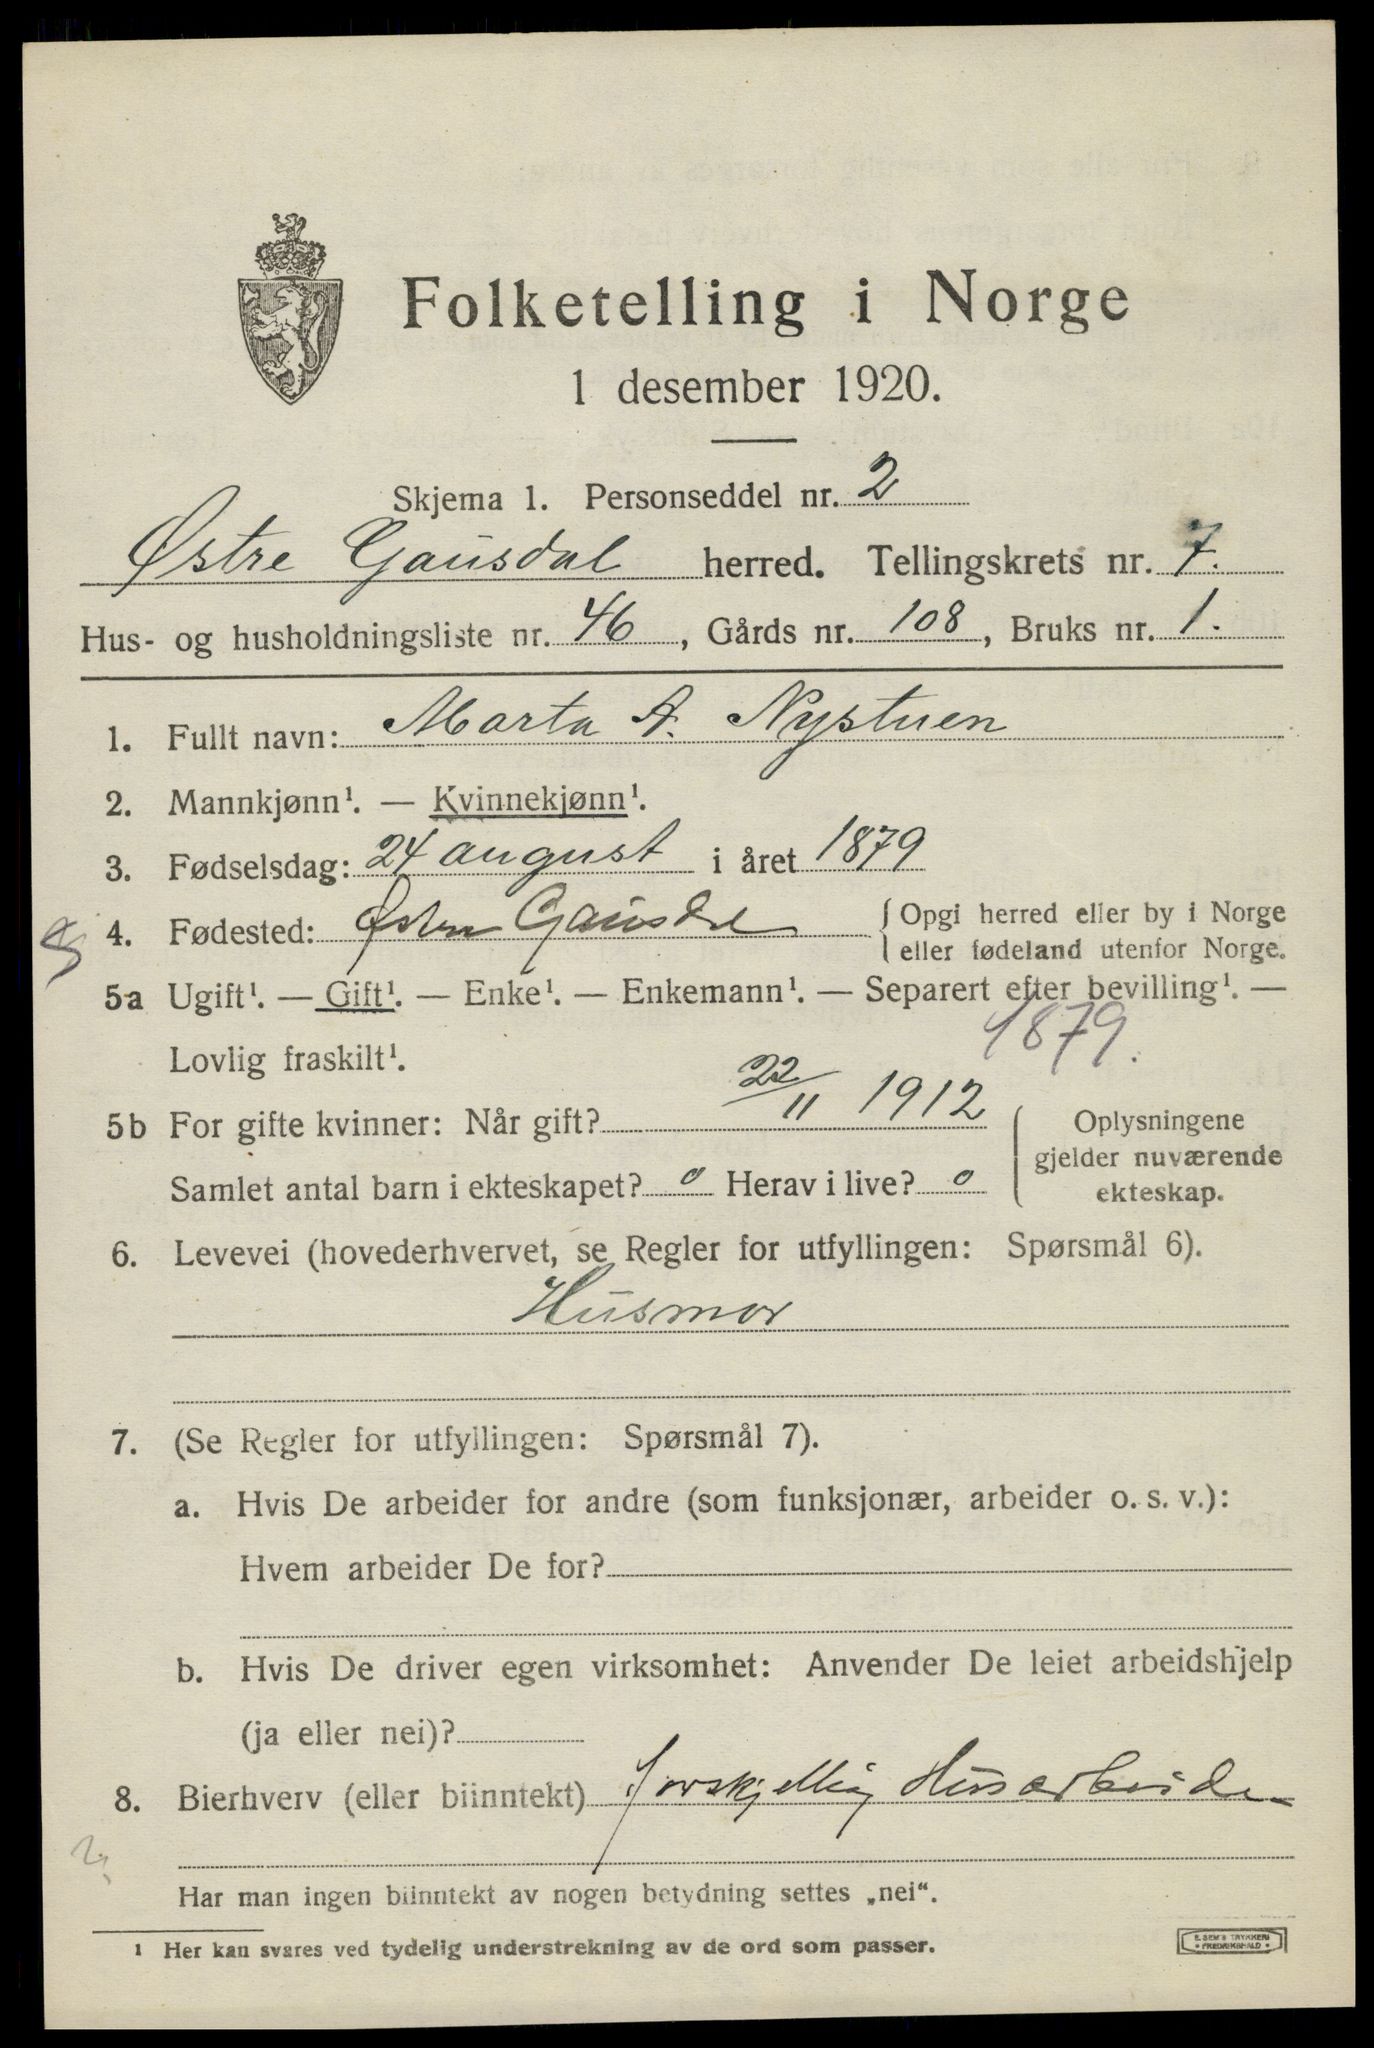 Folketelling i Norge
1 desember 1920.
Skjema 1. Personseddel nr. 2
Østre Gausdal herred. Tellingskrets nr. 7.
Hus- og husholdningsliste nr. 46, Gårds nr. 108, Bruks nr. 1.
1. Fullt navn: Marta A. Nystuen
2. Mannkjønn¹. — Kvinnekjønn¹.
3. Fødselsdag: 24 august i året 1879
4. Fødested: Østre Gausdal { Opgi herred eller by i Norge
eller fødeland utenfor Norge.
5a Ugift¹. — Gift¹. — Enke¹. — Enkemann¹. — Separert efter bevilling¹. —
Lovlig fraskilt¹. 1879.
5b For gifte kvinner: Når gift? 22/11 1912 { Oplysningene
gjelder nuværende
Samlet antal barn i ekteskapet? 0 Herav i live? 0 ekteskap.
6. Levevei (hovederhvervet, se Regler for utfyllingen: Spørsmål 6).
Husmor
7. (Se Regler for utfyllingen: Spørsmål 7).
a. Hvis De arbeider for andre (som funksjonær, arbeider o. s. v.):
Hvem arbeider De for?
b. Hvis De driver egen virksomhet: Anvender De leiet arbeidshjelp
(ja eller nei)?
8. Bierhverv (eller biinntekt) forskjellig Husarbeide
Har man ingen biinntekt av nogen betydning settes „nei“.
¹ Her kan svares ved tydelig understrekning av de ord som passer.
E. SEM'S TRYKKERI
FREDRIKSHALD